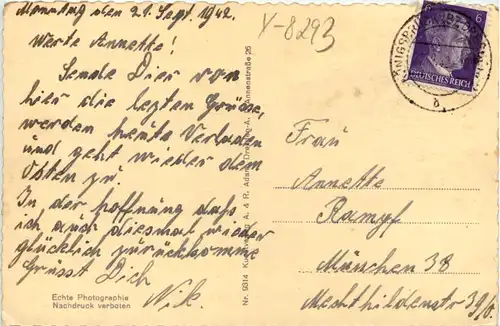 Montag den 21. Sept. 1942.
Werte Annette!
Sende Dier von
hier die lezten Grüsse,
werden heute Verladen
und geht wieder dem
Osten zu
In der Hoffnung daß
ich auch diesmal wieder
glücklich zurückkomme
Grüsst Dich
Nik.
Echte Photographie
Nachdruck verboten
Y-8293
Nr. 9314 A. & R. Adam, Dresden-A. Annenstraße 25
6
DEUTSCHES REICH
b
Frau
Annette
Rampf
München 38
Mechthildenstr 39/0.